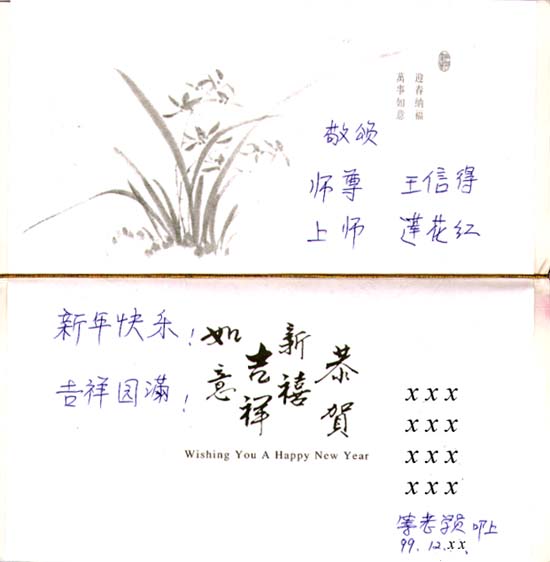 迎春納福
萬事如意
敬颂
师尊 王信得
上师 莲花红
新年快乐!
吉祥圆满!
恭賀
新禧
吉祥
如意
Wishing You A Happy New Year
x x x
x x x
x x x
x x x
等老学员 叩上
99.12.xx